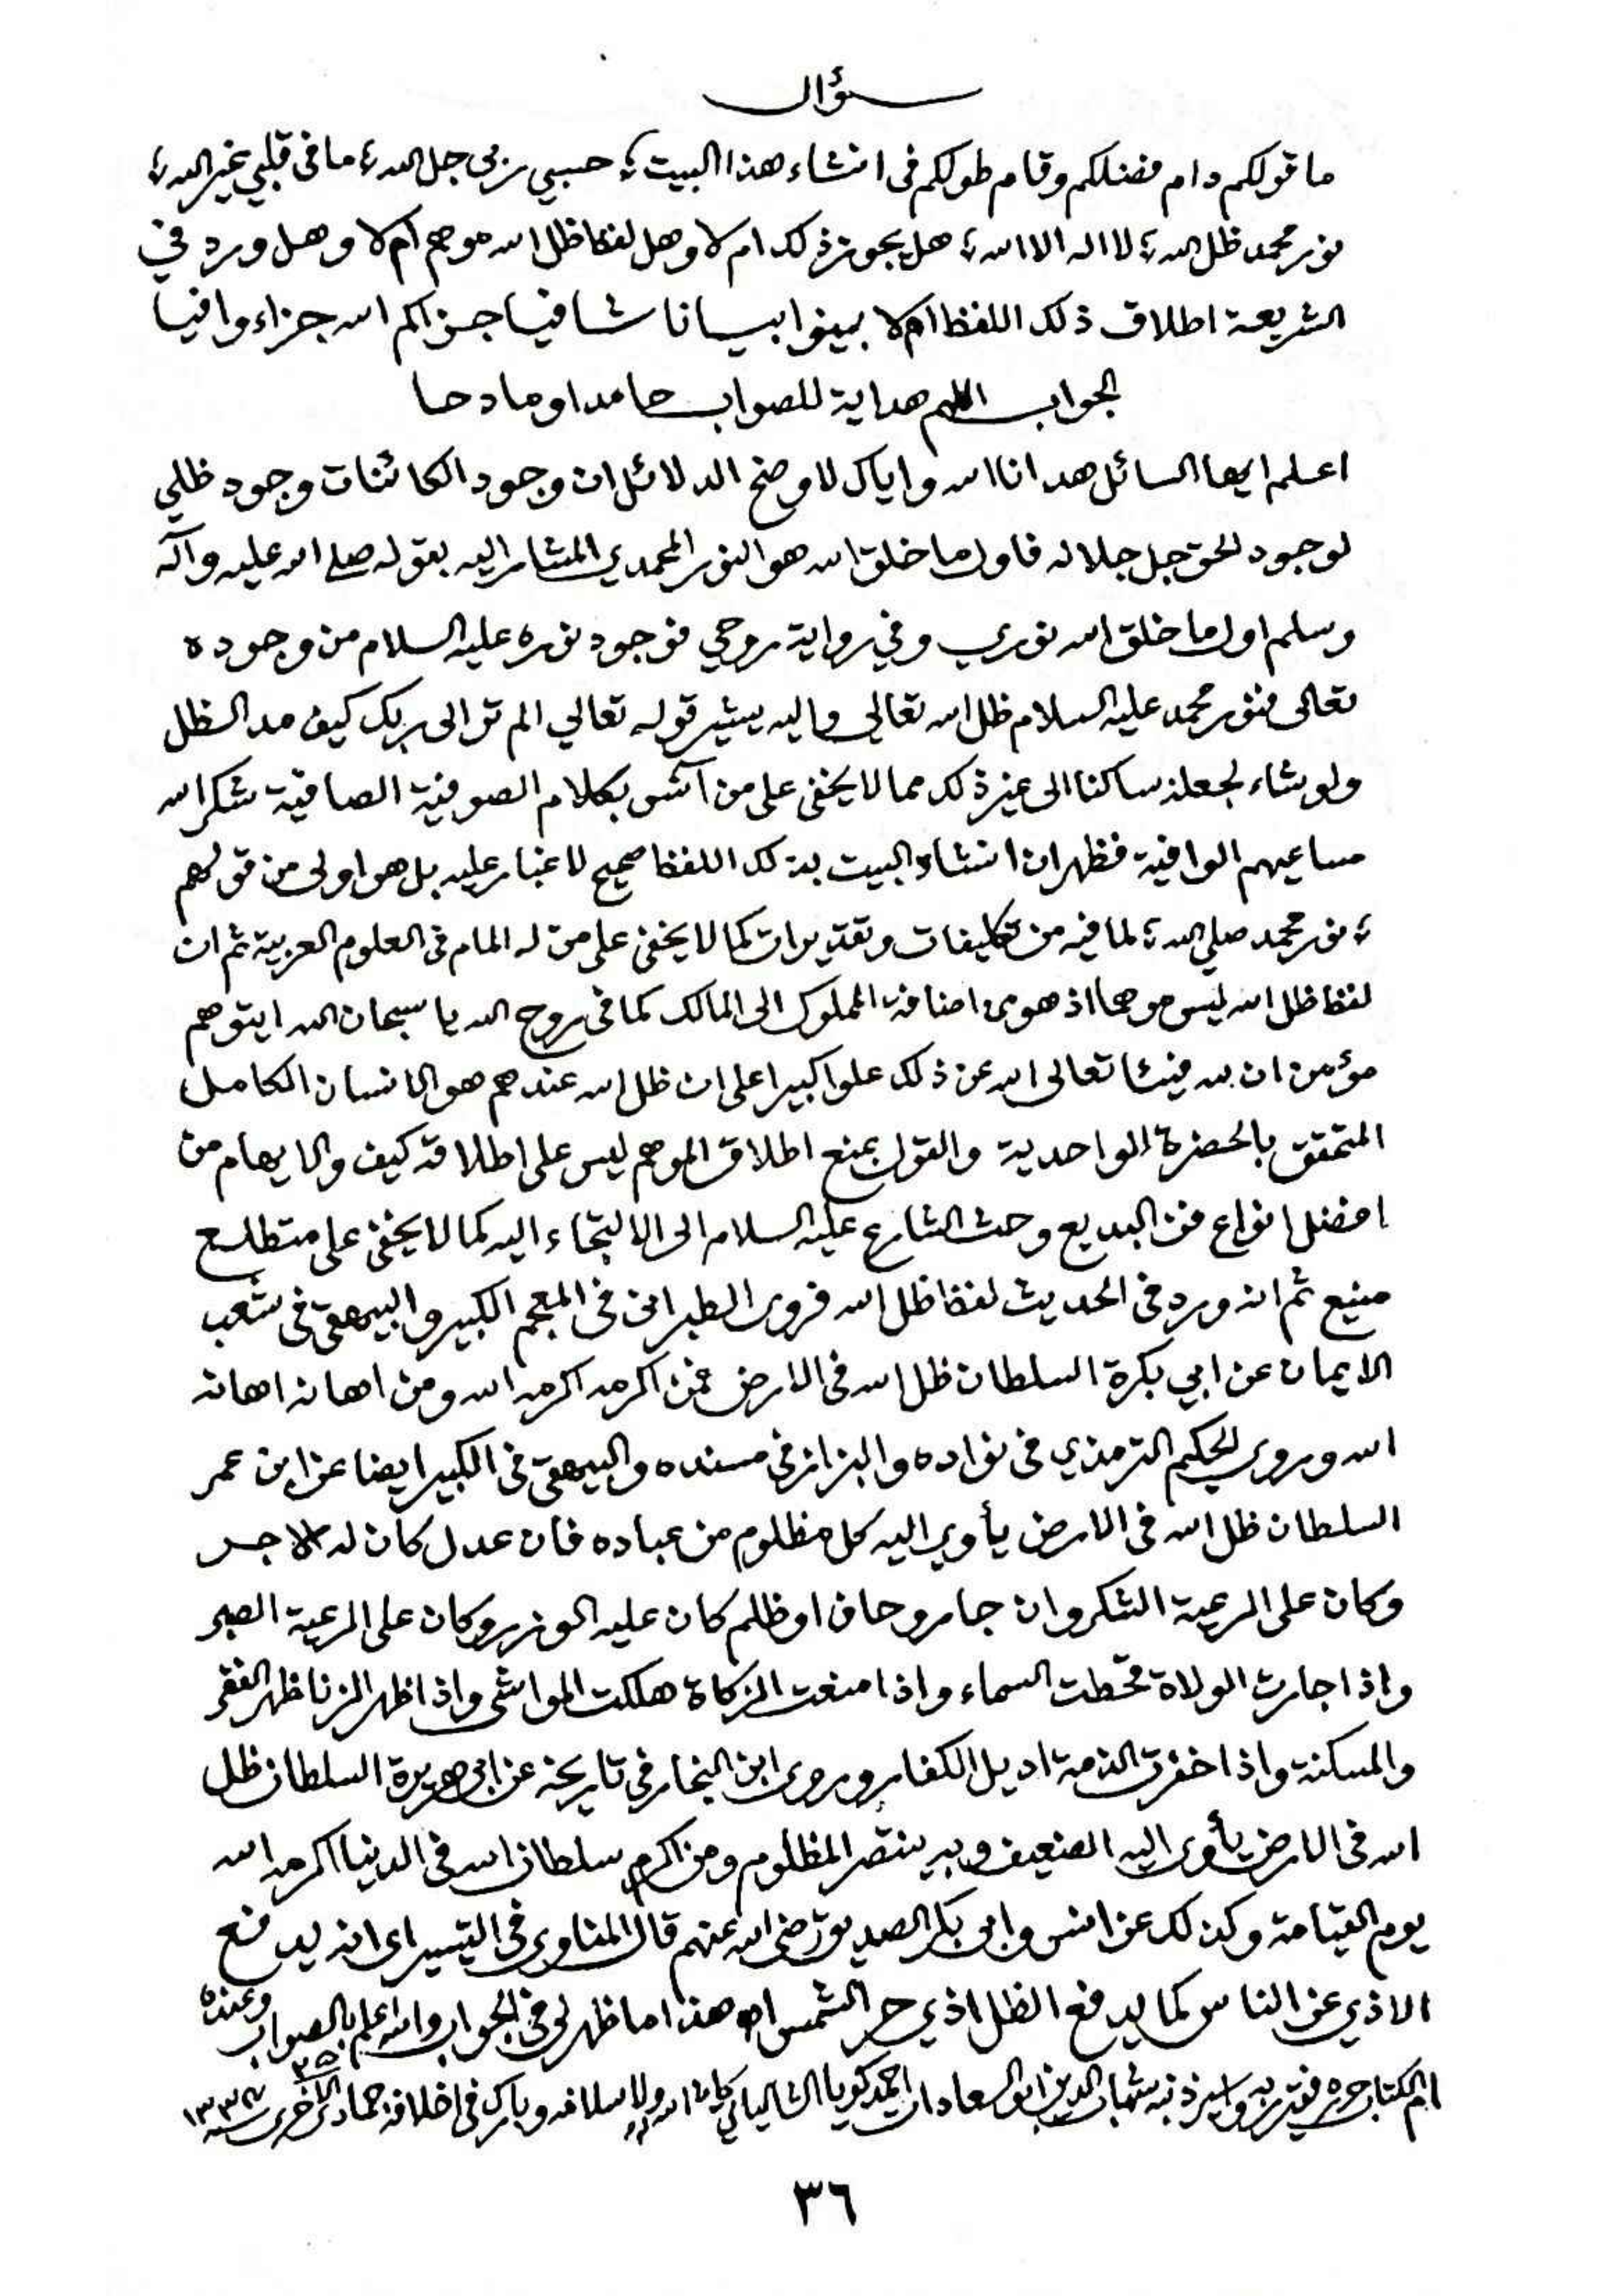 سؤال
ما قولكم دام فضلكم وقام طولكم فى انشاء هذا البيت ؛ حسبي ربى جل الله ؛ ما فى قلبي غير الله ؛
نور محمد ظل الله ؛ لا اله الا الله ؛ هل يجوز ذلك ام لا وهل لفظ ظل الله موهم ام لا وهل ورد في
الشريعة اطلاق ذلك اللفظ ام لا بينوا بيانا شافيا جزاكم الله جزاء وافيا
الجواب اللهم هداية للصواب حامدا ومادحا
اعلم ايها السائل هدانا الله واياك لاوضح الدلائل ان وجود الكائنات وجود ظلي
لوجود الحق جل جلاله فاول ما خلق الله هو النور المحمدي المشار اليه بقوله صلى الله عليه وآله
وسلم اول ما خلق الله نوري وفي رواية روحي فوجود نوره عليه السلام من وجوده
تعالى فنور محمد عليه السلام ظل الله تعالى واليه يشير قوله تعالي الم تر الى ربك كيف مد الظل
ولو شاء لجعله ساكنا الى غير ذلك مما لا يخفى على من آنس بكلام الصوفية الصافية شكر الله
مساعيهم الوافية فظهر ان انشاد البيت بذلك اللفظ صحيح لا غبار عليه بل هو اولى من قولهم
؛ نور محمد صلي الله ؛ لما فيه من تكليفات وتقديرات كما لا يخفى على من له المام فى العلوم العربية ثم ان
لفظ ظل الله ليس موهما اذ هو من اضافة المملوك الى المالك كما فى روح الله يا سبحان الله ايتوهم
مؤمن ان لله فيئا تعالى الله عن ذلك علوا كبيرا على ان ظل الله عندهم هو الانسان الكامل
المتحقق بالحضرة الواحدية والقول بمنع اطلاق الموهم ليس على اطلاقه كيف والايهام من
افضل انواع فن البديع وحث الشارع عليه السلام الى الالتجاء اليه كما لا يخفى على متطلع
منيع ثم انه ورد فى الحديث لفظ ظل الله فروى الطبرانى فى المعجم الكبير والبيهقى فى شعب
الايمان عن ابي بكرة السلطان ظل الله فى الارض فمن اكرمه اكرمه الله ومن اهانه اهانه
الله وروى الحكيم الترمذي فى نوادره والبزاز فى مسنده والبيهقى فى الكبير ايضا عن ابن عمر
السلطان ظل الله فى الارض يأوي اليه كل مظلوم من عباده فان عدل كان له الاجر
وكان على الرعية الشكر وان جار وحاف او ظلم كان عليه الوزر وكان على الرعية الصبر
واذا جارت الولاة قحطت السماء واذا منعت الزكاة هلكت المواشى واذا ظهر الزنا ظهر الفقر
والمسكنة واذا خفرت الذمة اديل الكفار وروى ابن النجار فى تاريخه عن ابى هريرة السلطان ظل
الله فى الارض يأوى اليه الضعيف وبه ينتصر المظلوم ومن اكرم سلطان الله فى الدنيا اكرمه الله
يوم القيامة وكذلك عن انس وابى بكر الصديق رضى الله عنهم قال المناوي فى التيسير اى انه يدفع
الاذي عن الناس كما يدفع الظل اذي حر الشمس اه هذا ما ظهر لى فى الجواب والله اعلم بالصواب وعنده
ام الكتاب حرره فقير ربه واسير ذنبه شهاب الدين ابو السعادات احمد كويا الشالياتي كان الله له ولاسلافه وبارك فى اخلافه جمادى الاخرى سنه
٣٦